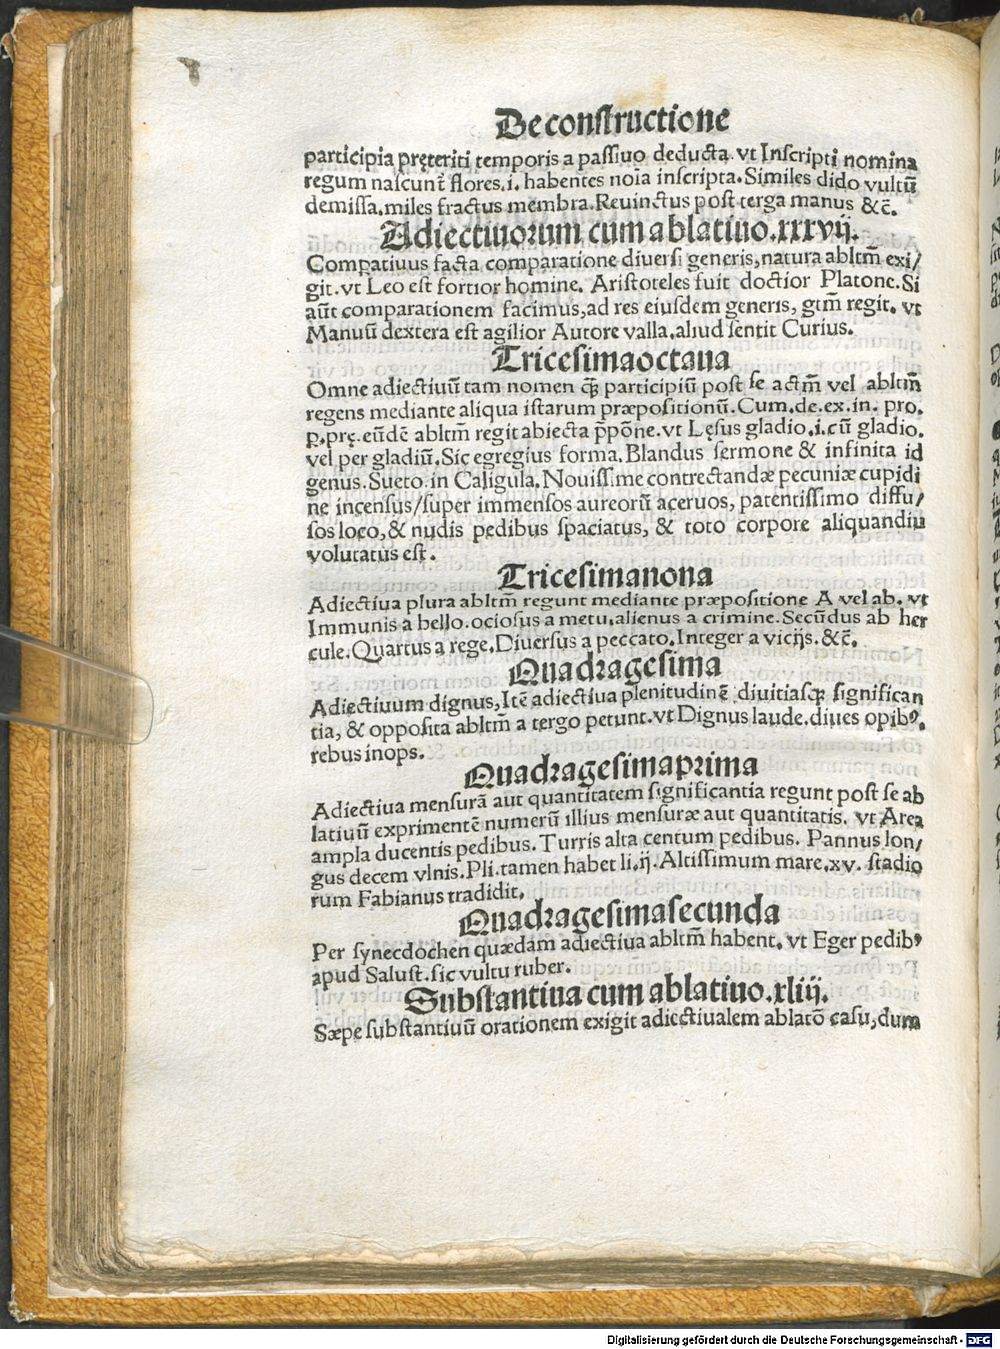 De constructione
participia pręteriti temporis a passiuo deducta. vt Inscripti nomina
regum nascunt̃ flores.i. habentes noĩa inscripta. Similes dido vultũ
demissa. miles fractus membra. Reuinctus post terga manus &c̃.
Adiectiuorum cum ablatiuo.xxxvij.
Compatiuus facta comparatione diuersi generis, natura abltm̃ exi/
git. vt Leo est fortior homine. Aristoteles fuit doctior Platone. Si
aũt comparationem facimus, ad res eiusdem generis, gtm̃ regit. vt
Manuũ dextera est agilior Autore valla. aliud sentit Curius.
Tricesimaoctaua
Omne adiectiuũ tam nomen q̃ participiũ post se actm̃ vel abltm̃
regens mediante aliqua istarum præpositionũ. Cum. de. ex. in. pro.
p. prę. eũdẽ abltm̃ regit abiecta p̃põne. vt Lęsus gladio.i. cũ gladio.
vel per gladiũ. Sic egregius forma. Blandus sermone & infinita id
genus. Sueto. in Caligula. Nouissime contrectandæ pecuniæ cupidi
ne incensus/super immensos aureorũ aceruos, patentissimo diffu/
sos loco, & nudis pedibus spaciatus, & toto corpore aliquandiu
volutatus est.
Tricesimanona
Adiectiua plura abltm̃ regunt mediante præpositione A vel ab. vt
Immunis a bello. ociosus a metu. alienus a crimine. Secũdus ab her
cule. Quartus a rege. Diuersus a peccato. Integer a vicijs. &c̃.
Quadragesima
Adiectiuum dignus, Itẽ adiectiua plenitudinẽ diuitiasq; significan
tia, & opposita abltm̃ a tergo petunt. vt Dignus laude. diues opibꝰ.
rebus inops.
Quadragesimaprima
Adiectiua mensurã aut quantitatem significantia regunt post se ab
latiuũ exprimentẽ numerũ illius mensuræ aut quantitatis. vt Area
ampla ducentis pedibus. Turris alta centum pedibus. Pannus lon/
gus decem vlnis. Pli. tamen habet li.ij. Altissimum mare.xv. stadio
rum Fabianus tradidit.
Quadragesimasecunda
Per synecdochen quædam adiectiua abltm̃ habent. vt Eger pedibꝰ
apud Salust. sic vultu ruber.
Substantiua cum ablatiuo.xliij.
Sæpe substantiuũ orationem exigit adiectiualem ablatõ casu, dum
Digitalisierung gefördert durch die Deutsche Forschungsgemeinschaft - DFG